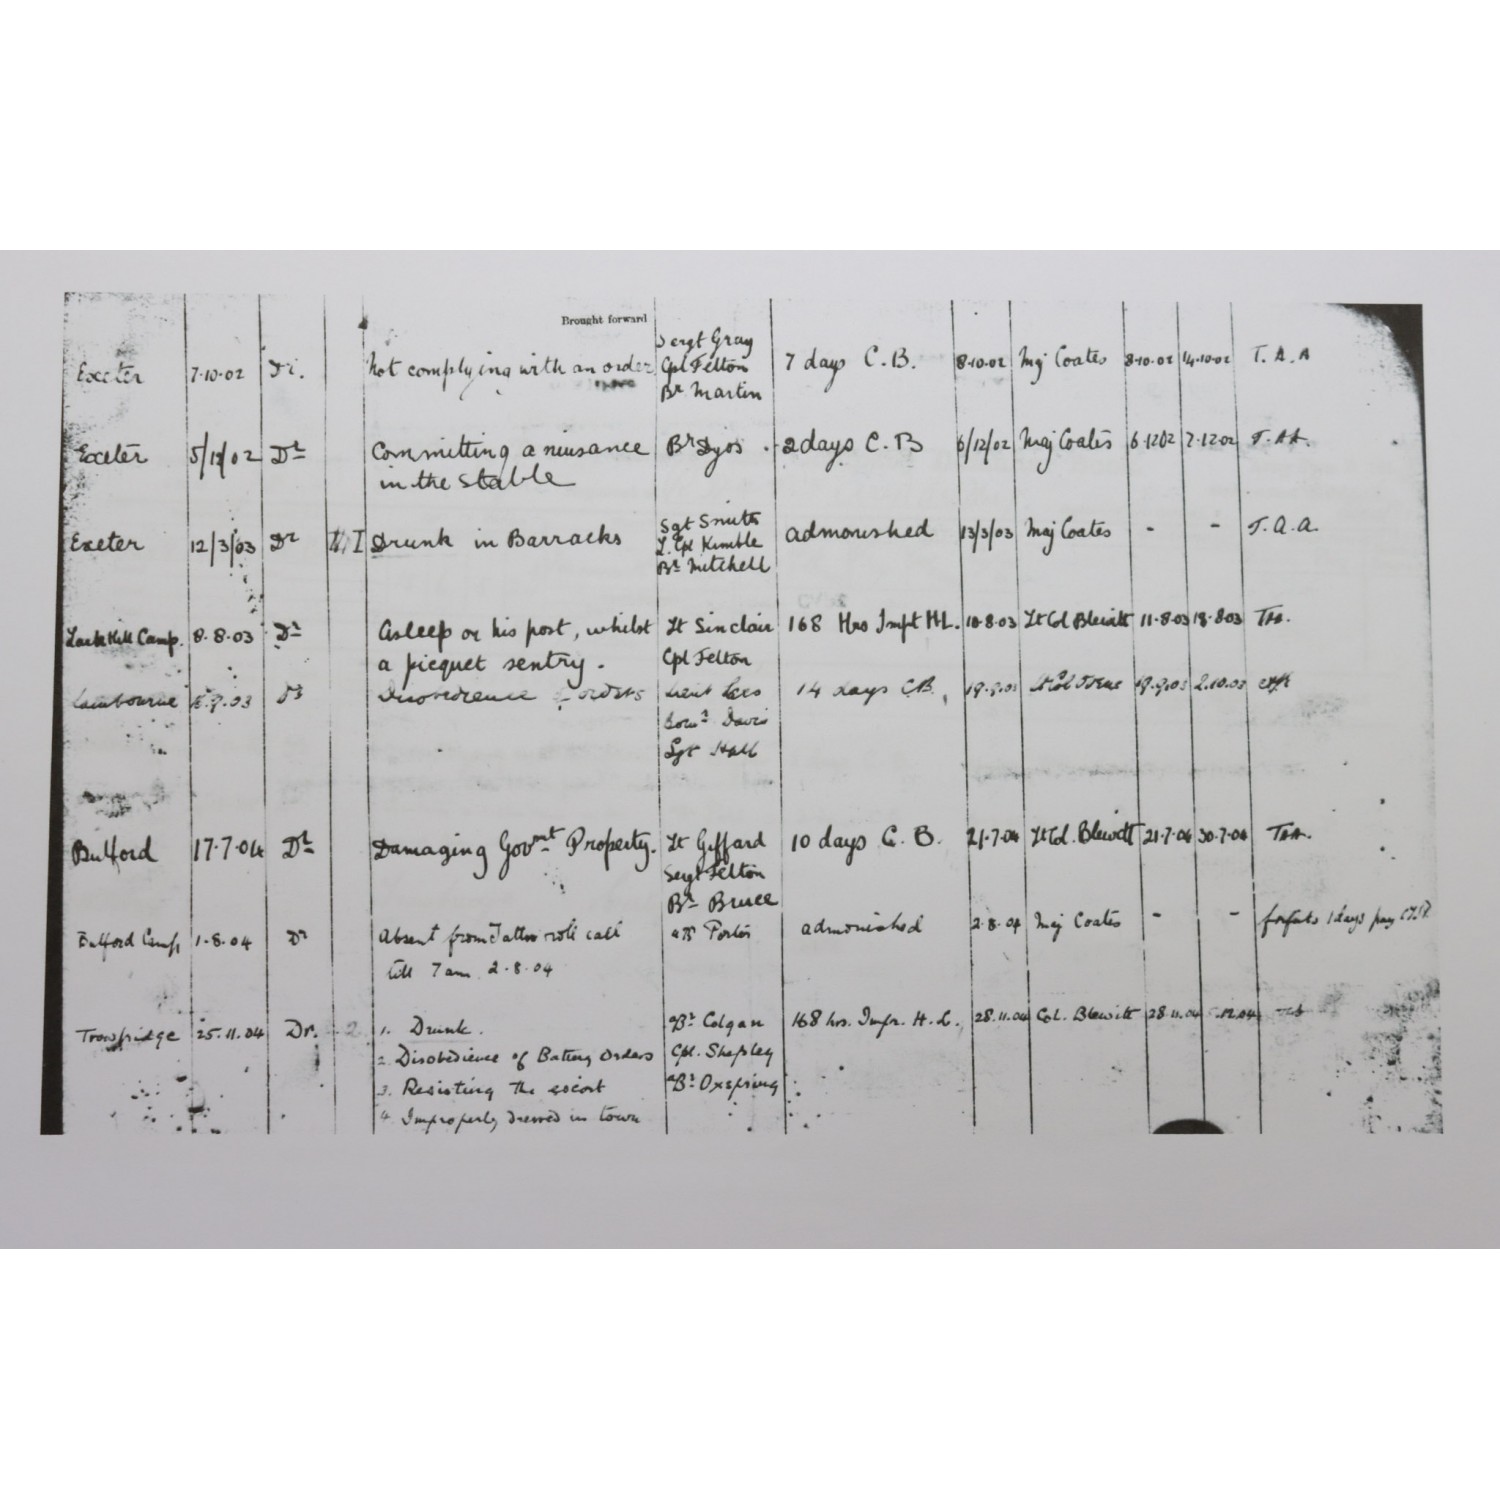 Brought forward
Exeter 7.10.02 Dr. Not complying with an order Sergt Gray 7 days C.B. 8.10.02 Maj Coates 8.10.02 14.10.02 T.A.A
Cpl Felton
Br Martin
Exeter 02 Dr Committing a nuisance Br Dyos 2 days C.B 6/12/02 Maj Coates 6.12.02 7.12.02 T.A.A.
in the stable
Exeter 12/3/03 Dr I Drunk in Barracks Sgt Smith admonished 13/3/03 Maj Coates - - T.A.A.
L. Cpl Kimble
Br Mitchell
Lark Hill Camp. 8.8.03 Dr Asleep on his post, whilst Lt Sinclair 168 Hrs Impt H.L. 10.8.03 Lt Col Blewitt 11.8.03 18.8.03
a picquet sentry. Cpl Felton
Lambourne 9.03 Dr Disobedience of orders Lieut Lees 14 days C.B. 19.9.03 Lt Col 19.9.03 2.10.03
Bomr Davis
Sgt Hall
Bulford 17.7.04 Dr Damaging Govmt Property. Lt Giffard 10 days C.B. 21.7.04 Lt Col. Blewitt 21.7.04 30.7.04 TAA.
Sergt Felton
Br Bruce
Bulford Camp 1.8.04 Dr Absent from Tattoo roll call Br Porter admonished 2.8.04 Maj Coates - - forfeits 1 days pay
till 7 am 2.8.04
Trowbridge 25.11.04 Dr. 2 1. Drunk. Br Colgan 168 hrs. Impr. H.L. 28.11.04 Col. Blewitt 28.11.04 .12.04
2. Disobedience of Battery Orders Cpl. Shepley
3. Resisting the escort Br Oxspring
4. Improperly dressed in town